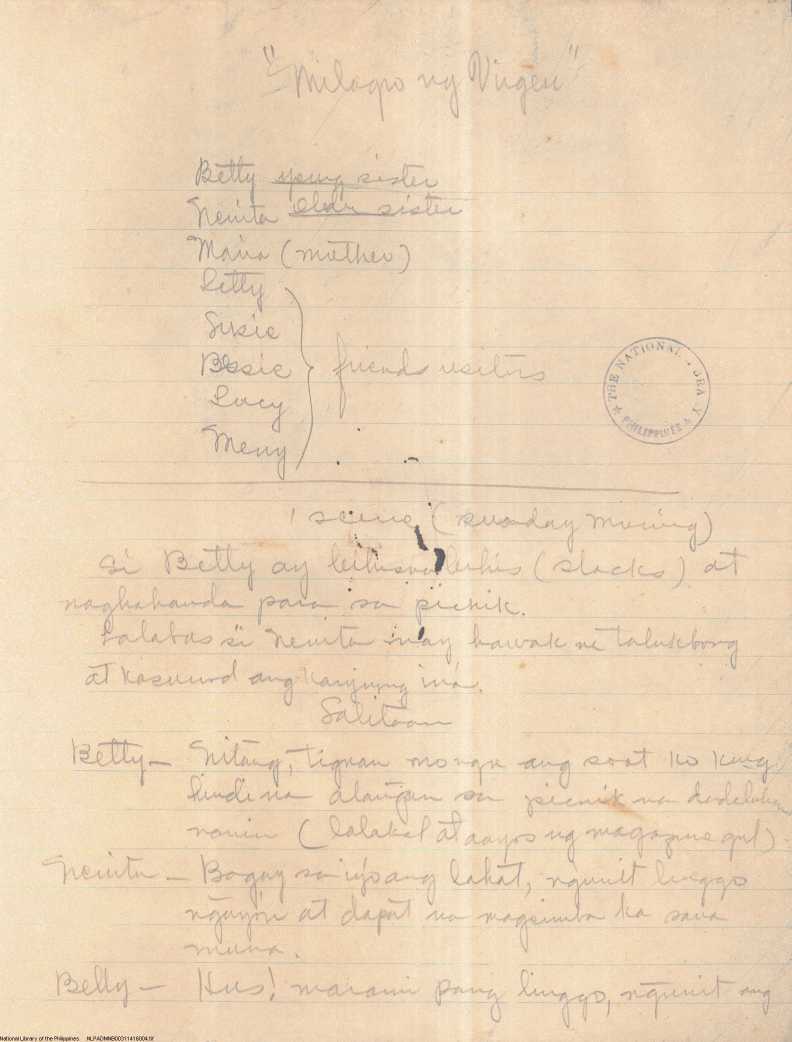 "Milagro ng Virgen"
Betty young sister
Nenita older sister
Maria (mother)
Letty
Susie
Bessie
Lucy
Meny
friends visitors
THE NATIONAL LIBRARY
PHILIPPINES
1 scene (sunday morning)
Si Betty ay bihis na bihis (slacks) at
naghahanda para sa picnik.
Lalabas si Nenita may hawak na talukbong
at kasunod ang kanyang ina.
Salitaan
Betty — Nitang, tignan mo nga ang soot ko kung
hindi na alangan sa picnik na dadaluhan
namin (lalakad at aayos ng magazine girl).
Nenita — Bagay sa iyo ang lahat, ngunit linggo
ngayon at dapat na magsimba ka sana
muna.
Betty — Hus! marami pang linggo, ngunit ang
National Library of the Philippines. NLPADNNB00311416004.tif